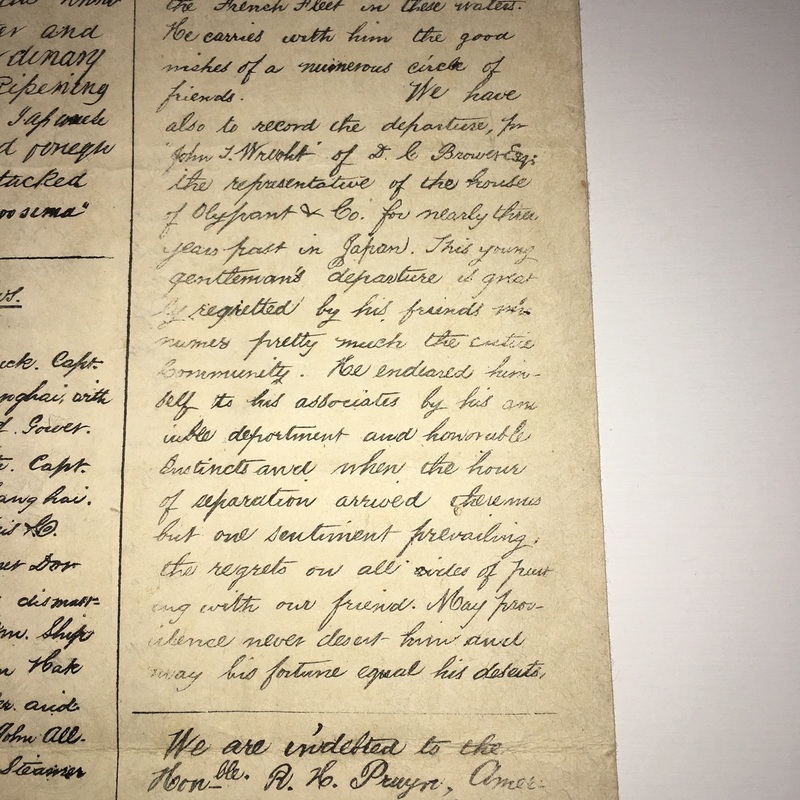 er and
dinary
Ripening
Japanese
d foreign
tacked
oosima"
ws.
uck. Capt.
nghai, with
d. Gower.
Capt.
anghai.
is & Co.
ner Dor
dismast-
m. Ship
n Hak
and
John All-
Steamer
the French Fleet in these waters.
He carries with him the good
wishes of a numerous circle of
friends. We have
also to record the departure, pr
"John T. Wright" of D. C Brower Esq;
the representative of the house
of Olyphant & Co. for nearly three
years past in Japan. This young
gentleman's departure is great
ly regretted by his friends who
number pretty much the entire
Community. He endeared him-
self to his associates by his am
iable deportment and honorable
Instincts and when the hour
of separation arrived there was
but one sentiment prevailing,
the regrets on all sides of part
ing with our friend. May prov-
idence never desert him and
may his fortune equal his deserts.
We are indebted to the
Hon-ble. R. H. Pruyn, Amer-